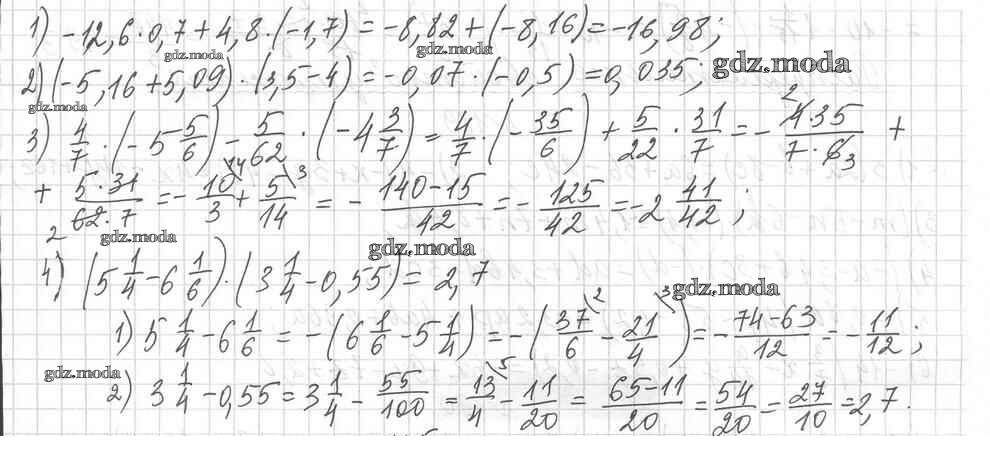 1) -12,6·0,7+4,8·(-1,7) = -8,82+(-8,16) = -16,98;
gdz.moda gdz.moda
2) (-5,16+5,09)·(3,5-4) = -0,07·(-0,5) = 0,035; gdz.moda
gdz.moda
3) 4/7·(-5 5/6) - 5/62·(-4 3/7) = 4/7·(-35/6) + 5/22·31/7 = - 4·35/7·6 2 3 +
+ 5·31/62·7 2 = -10/3 14 + 5/14 3 = - 140-15/42 = -125/42 = -2 41/42;
gdz.moda gdz.moda
4) (5 1/4 - 6 1/6)·(3 1/4 - 0,55) = 2,7
gdz.moda
1) 5 1/4 - 6 1/6 = -(6 1/6 - 5 1/4) = -(37/6 2 - 21/4 3) = - 74-63/12 = -11/12;
gdz.moda
2) 3 1/4 - 0,55 = 3 1/4 - 55/100 = 13/4 5 - 11/20 = 65-11/20 = 54/20 = 27/10 = 2,7.